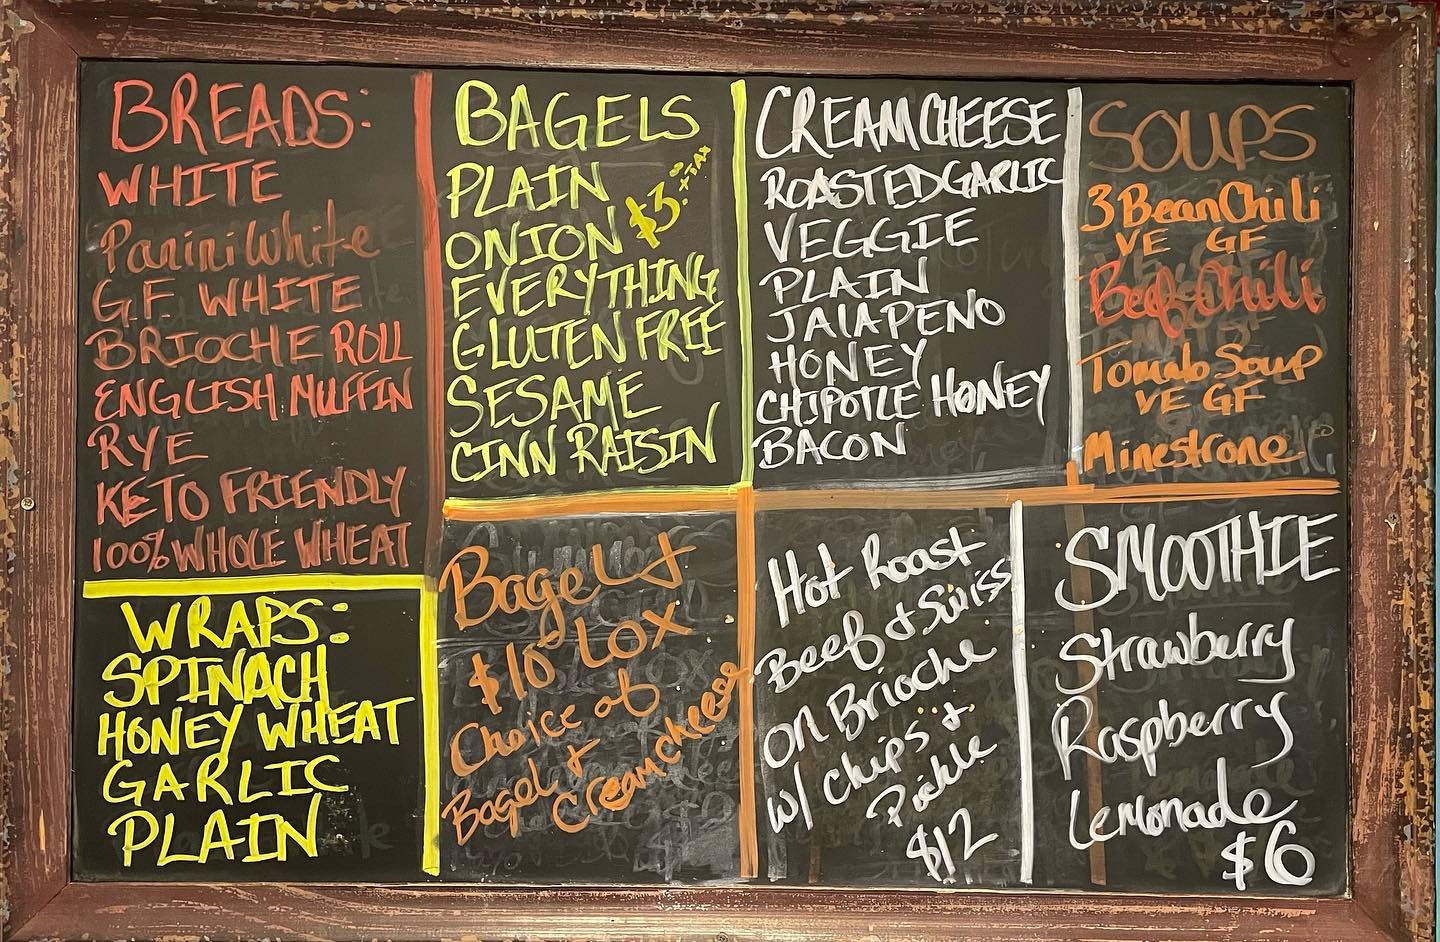 BREADS:
WHITE
Panini White
G.F. WHITE
BRIOCHE ROLL
ENGLISH MUFFIN
RYE
KETO FRIENDLY
100% WHOLE WHEAT
WRAPS:
SPINACH
HONEY WHEAT
GARLIC
PLAIN
BAGELS
PLAIN
ONION
$3.00 + TAX
EVERYTHING
GLUTEN FREE
SESAME
CINN RAISIN
Bagel &
$10 LOX
Choice of
Bagel +
Cream cheese
CREAM CHEESE
ROASTED GARLIC
VEGGIE
PLAIN
JALAPENO
HONEY
CHIPOTLE HONEY
BACON
Hot Roast
Beef & Swiss
on Brioche
w/ Chips +
Pickle
$12
SOUPS
3 Bean Chili
VE GF
Beef Chili
Tomato Soup
VE GF
Minestrone
SMOOTHIE
Strawberry
Raspberry
Lemonade
$6